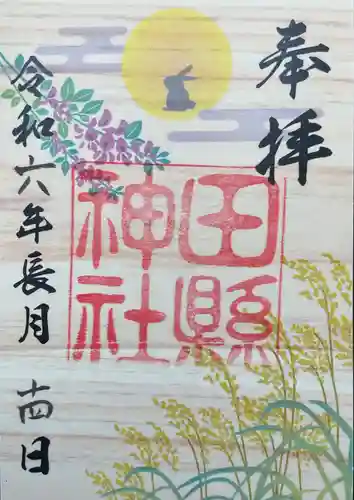 奉拝
田縣
神社
令和六年長月
十四日